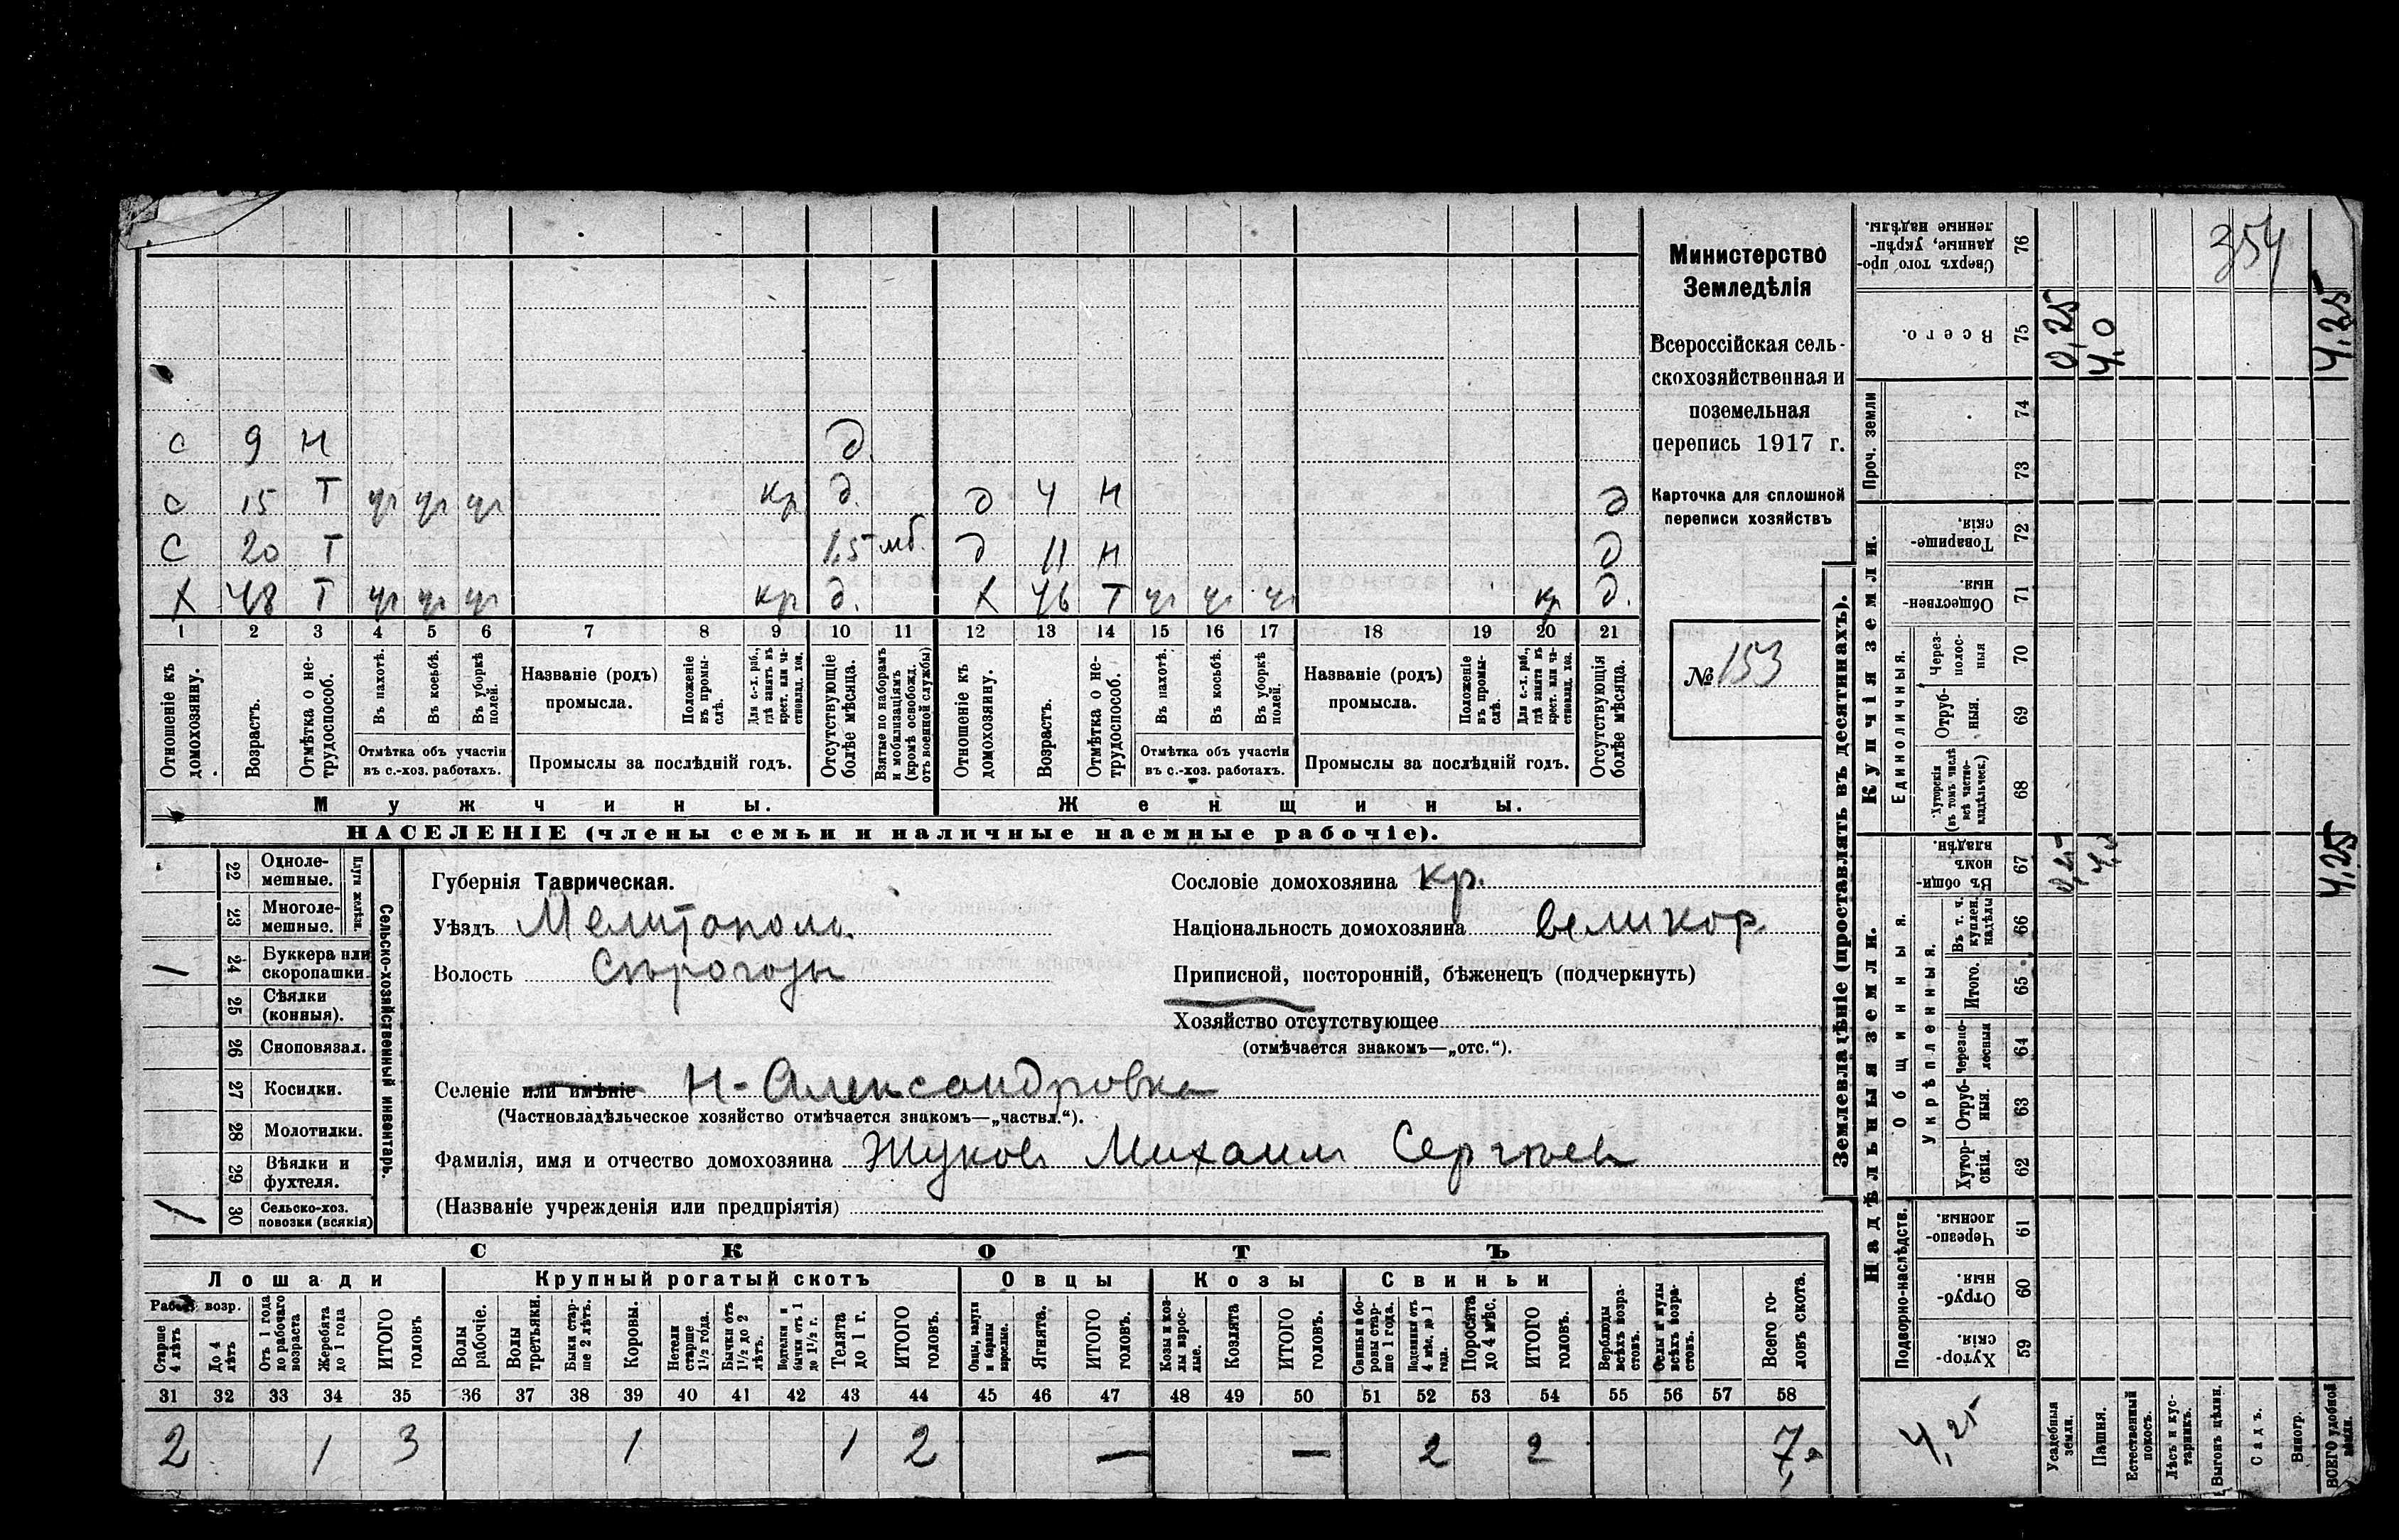 с 9 Н д.
с 15 Т уч уч уч кр д. д 4 Н д
с 20 Т 1,5 мб. д 11 Н д
х 48 Т уч уч уч кр д. х 46 Т уч уч уч кр д.
1 2 3 4 5 6 7 8 9 10 11 12 13 14 15 16 17 18 19 20 21
Отношеніе къ домохозяину.
Возрастъ.
Отмѣтка о нетрудоспособ.
Въ пахотѣ.
Въ косьбѣ.
Въ уборкѣ полей.
Отмѣтка объ участіи
въ с.-хоз. работахъ.
Названіе (родъ)
промысла.
Положеніе въ промыслѣ.
Для с.-х. раб., гдѣ занятъ въ крест. или частновлад. хоз.
Промыслы за послѣдній годъ.
Отсутствующіе болѣе мѣсяца.
Взятые по наборамъ и мобилизаціямъ (кромѣ освобожд. отъ военной службы)
Отношеніе къ домохозяину.
Возрастъ.
Отмѣтка о нетрудоспособ.
Въ пахотѣ.
Въ косьбѣ.
Въ уборкѣ полей.
Отмѣтка объ участіи
въ с.-хоз. работахъ.
Названіе (родъ)
промысла.
Положеніе въ промыслѣ.
Для с.-х. раб., гдѣ занята въ крест. или частновлад. хоз.
Промыслы за послѣдній годъ.
Отсутствующія болѣе мѣсяца.
Мужчины. Женщины.
НАСЕЛЕНІЕ (члены семьи и наличные наемные рабочіе).
Министерство
Земледѣлія
Всероссійская сель-
скохозяйственная и
поземельная
перепись 1917 г.
Карточка для сплошной
переписи хозяйствъ
№ 153
22 Одноле-
мешные.
23 Многоле-
мешные.
Плуги желѣзн.
/ 24 Буккера или
скоропашки.
25 Сѣялки
(конныя).
26 Сноповязал.
27 Косилки.
28 Молотилки.
29 Вѣялки и
фухтеля.
/ 30 Сельско-хоз.
повозки (всякія)
Сельско-хозяйственный инвентарь.
Губернія Таврическая.
Уѣздъ Мелитополь.
Волость Сѣрогозы
Сословіе домохозяина кр.
Національность домохозяина великор.
Приписной, посторонній, бѣженецъ (подчеркнуть)
Хозяйство отсутствующее
(отмѣчается знакомъ—„отс.“).
Селеніе или имѣніе Н-Александровка
(Частновладѣльческое хозяйство отмѣчается знакомъ—„частвл.“).
Фамилія, имя и отчество домохозяина Жуковъ Михаилъ Сергѣевъ
(Названіе учрежденія или предпріятія)
СКОТЪ
Лошади Крупный рогатый скотъ Овцы Козы Свиньи
Рабоч. возр.
Старше 4 лѣтъ
До 4 лѣтъ
Отъ 1 года до рабочаго возраста
Жеребята до 1 года
ИТОГО головъ
Волы рабочіе.
Волы третьяки.
Быки старше 2 лѣтъ.
Коровы.
Нетели старше 1½ года.
Бычки отъ 1½ до 2 лѣтъ.
Телята до 1 г.
ИТОГО головъ.
Ягнята.
ИТОГО головъ.
Козы и козлы взрослые.
Козлята
ИТОГО головъ.
Свиньи и боровы старше 1 года.
Подсвинки отъ 4 мѣс. до 1 года.
Поросята до 4 мѣс.
ИТОГО головъ.
Верблюды всѣхъ возрастовъ.
Ослы и мулы всѣхъ возрастовъ.
Всего головъ скота.
31 32 33 34 35 36 37 38 39 40 41 42 43 44 45 46 47 48 49 50 51 52 53 54 55 56 57 58
2 1 3 1 1 2 — — 2 2 7
Землевладѣніе (проставлять въ десятинахъ).
Надѣльныя земли.
Купчія земли.
Проч. земли
Подворно-наслѣдств.
Общинныя.
Укрѣпленныя.
Единоличныя.
Сверхъ того проданные, укрѣпленные надѣлы. 76 354
Всего. 75 0,25 4,0 4,25
74
73
Товарищескія. 72
Общественныя. 71
Черезполосныя 70
Отрубныя. 69
Хуторскія (въ томъ числѣ всѣ частновладѣльческ.) 68
Въ общинномъ владѣн. 67 4,25
Въ т. ч. куплен. надѣлы 66
Итого. 65
Черезполосныя 64
Отрубныя. 63
Хуторскія. 62
Черезполосныя. 61
Отрубныя. 60
Хуторскія. 59
4,25
Усадебныя земли.
Пашня.
Естественный покосъ.
Лѣсъ и кустарникъ.
Выгонъ цѣлин.
Садъ.
Виногр.
ВСЕГО удобной земли.